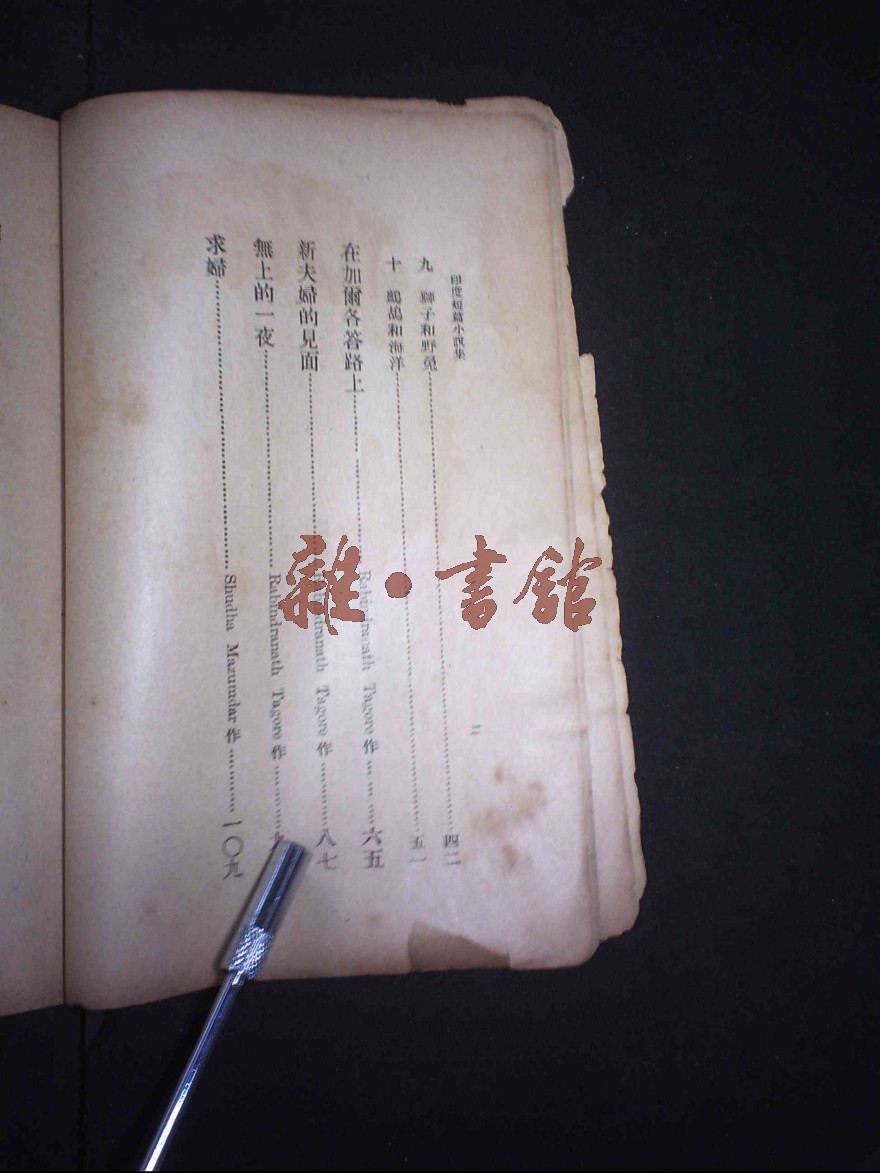 印度短篇小說集
二
九 獅子和野兔…………四二
十 鷓鴣和海洋…………五一
在加爾各答路上…………Rabindranath Tagore 作…………六五
新夫婦的見面…………Rabindranath Tagore 作…………八七
無上的一夜…………Rabindranath Tagore 作…………
求婦…………Shudha Mazumdar 作…………一〇
雜·書館